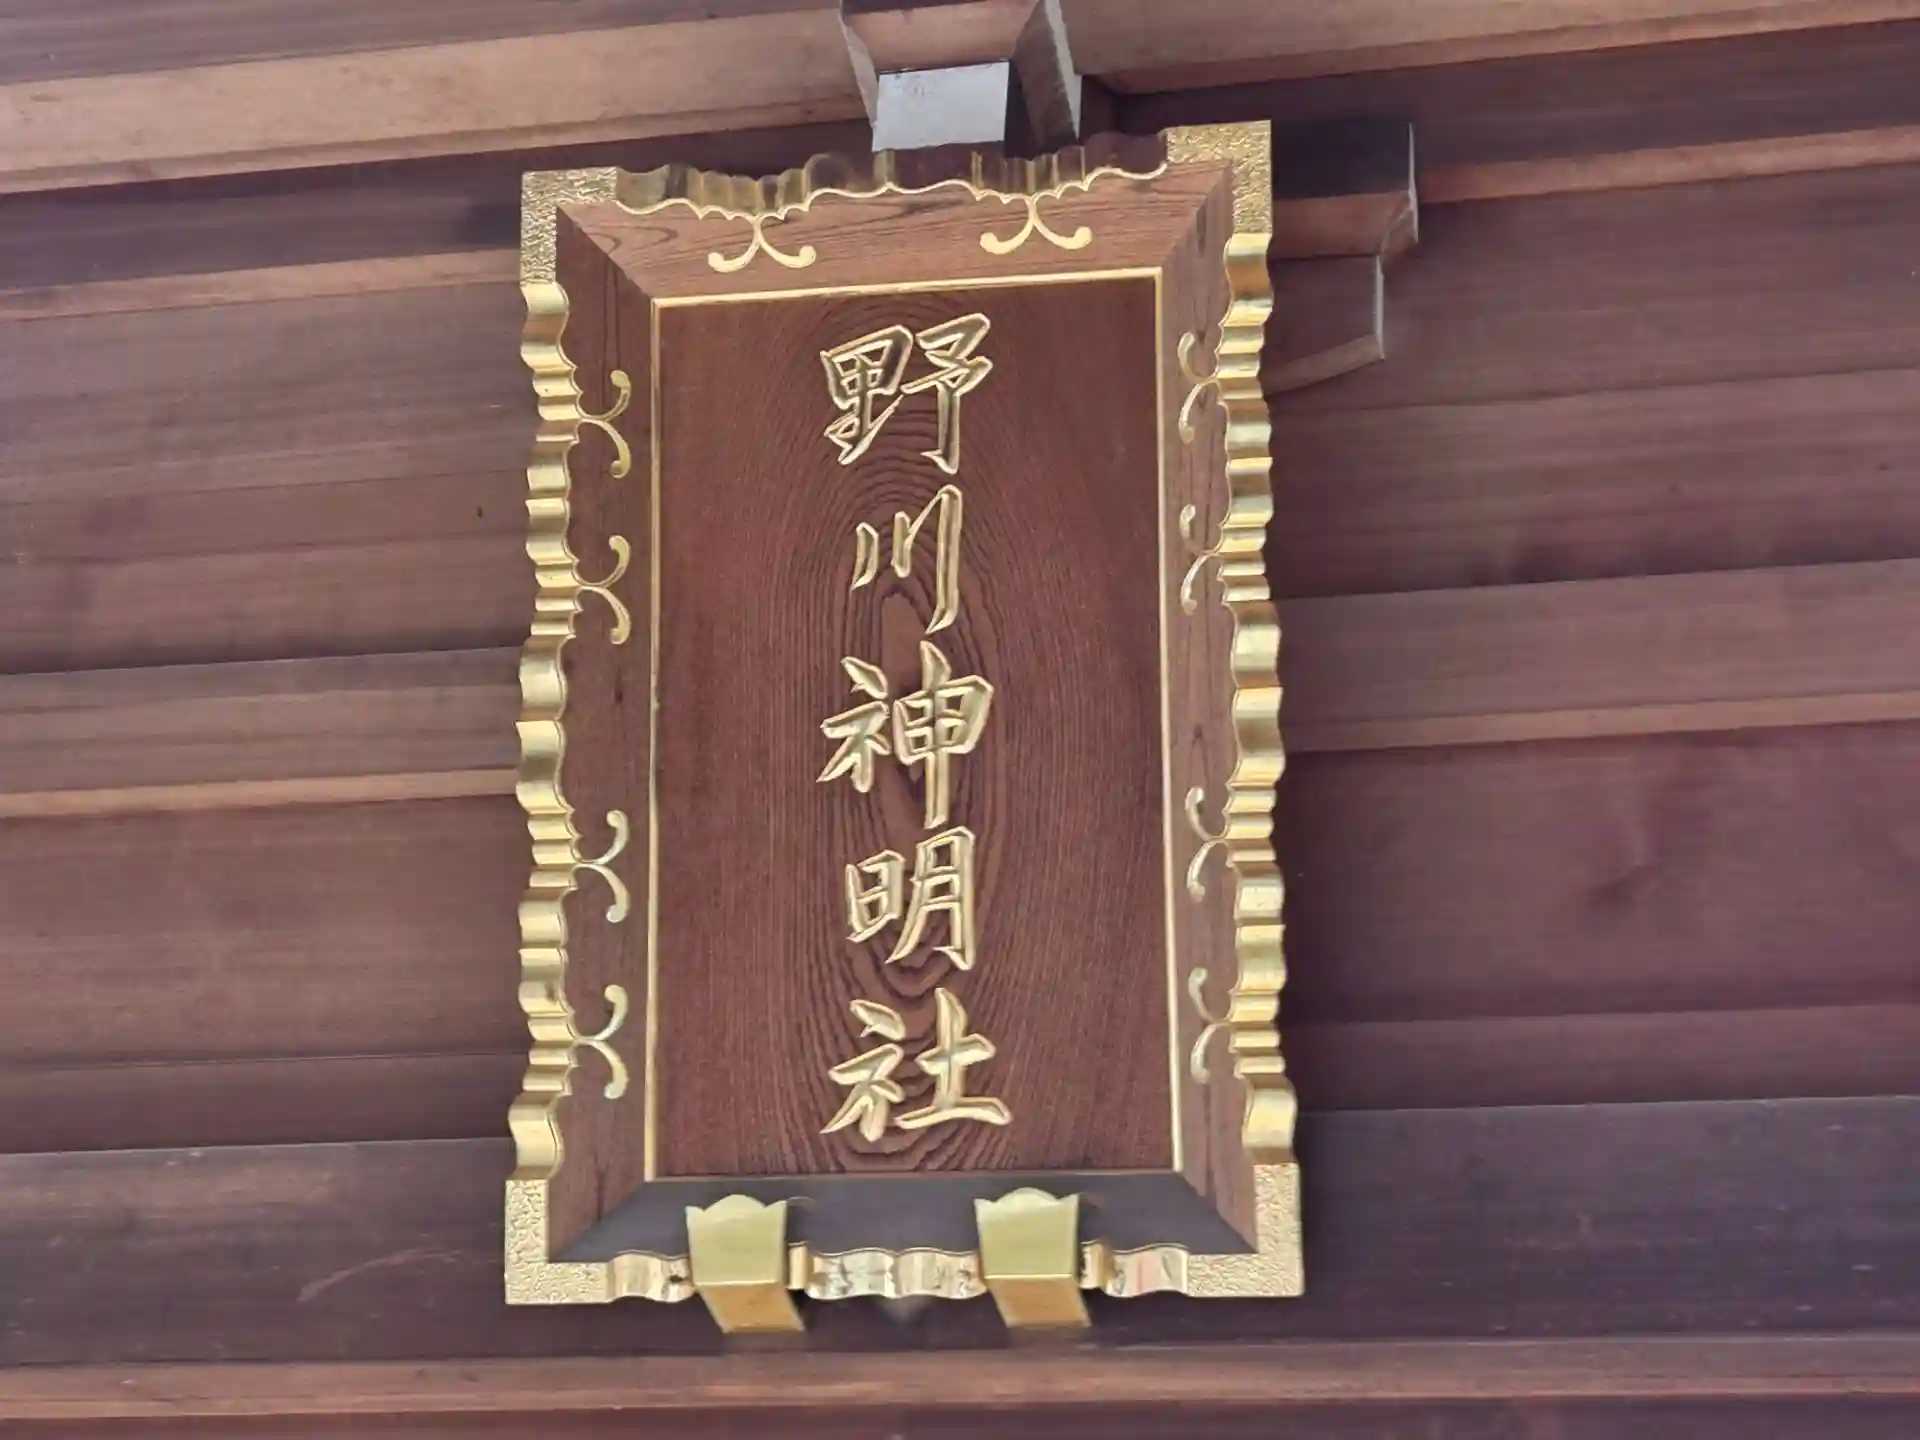 野川神明社